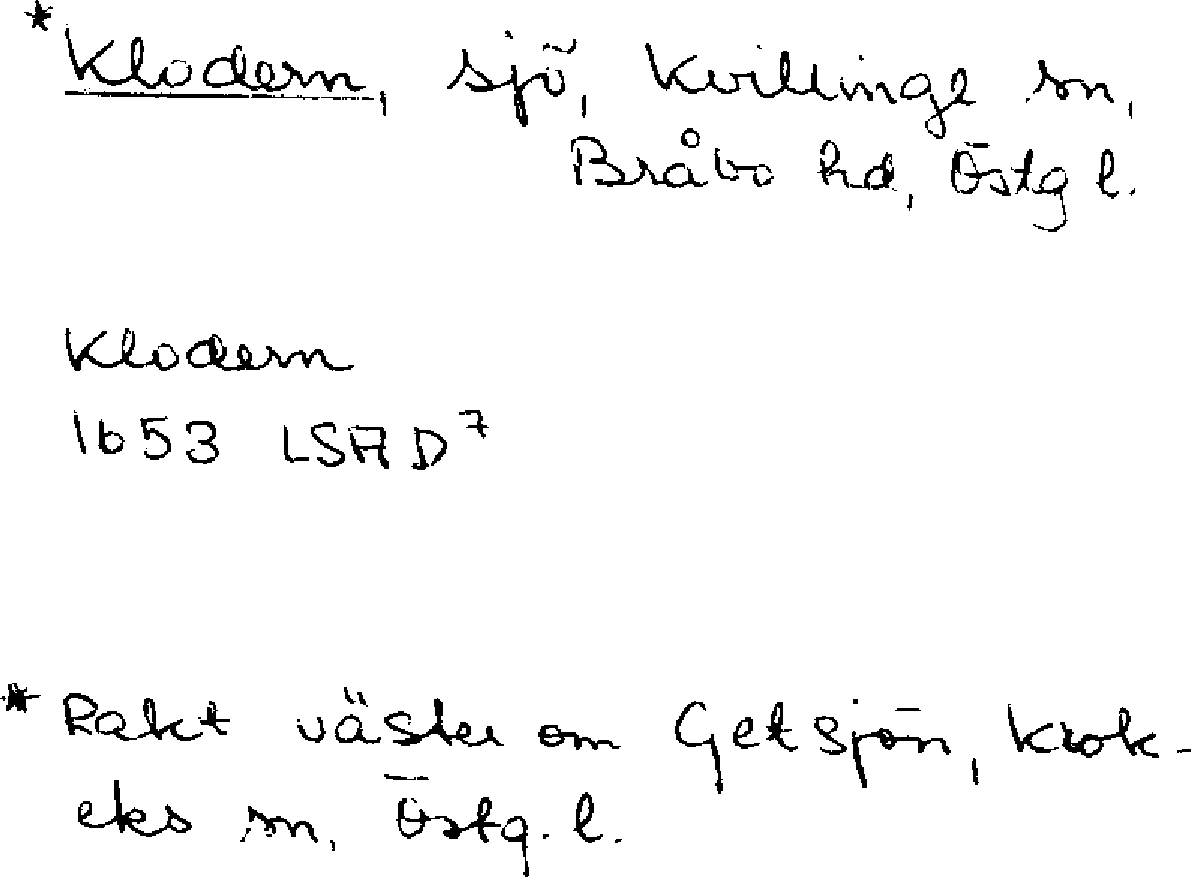 *Klodern, sjö, Kvillinge sn,
Bråbo hd, Östg l.
Klodern
1653 LSA D⁷
* Rakt väster om Getsjön, Krok-
eks sn, Östg. l.